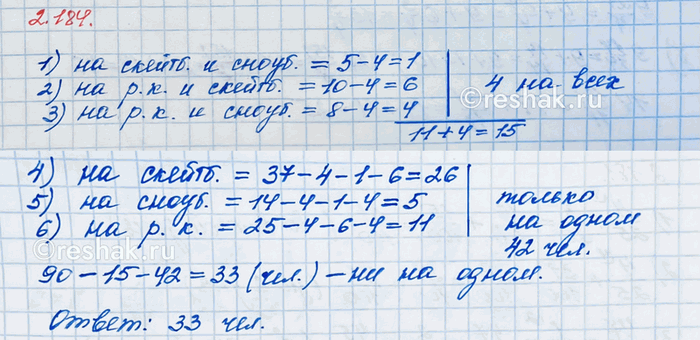 2.184.
1) на скейтб. и сноуб. = 5-4=1
2) на р.к. и скейтб. = 10-4=6
3) на р.к. и сноуб. = 8-4=4
4 на всех
11+4=15
4) на скейтб. = 37-4-1-6=26
5) на сноуб. = 14-4-1-4=5
6) на р.к. = 25-4-6-4=11
только
на одном
42 чел.
90-15-42=33 (чел.) - ни на одном.
Ответ: 33 чел.
©reshak.ru
©reshak.ru
©reshak.ru